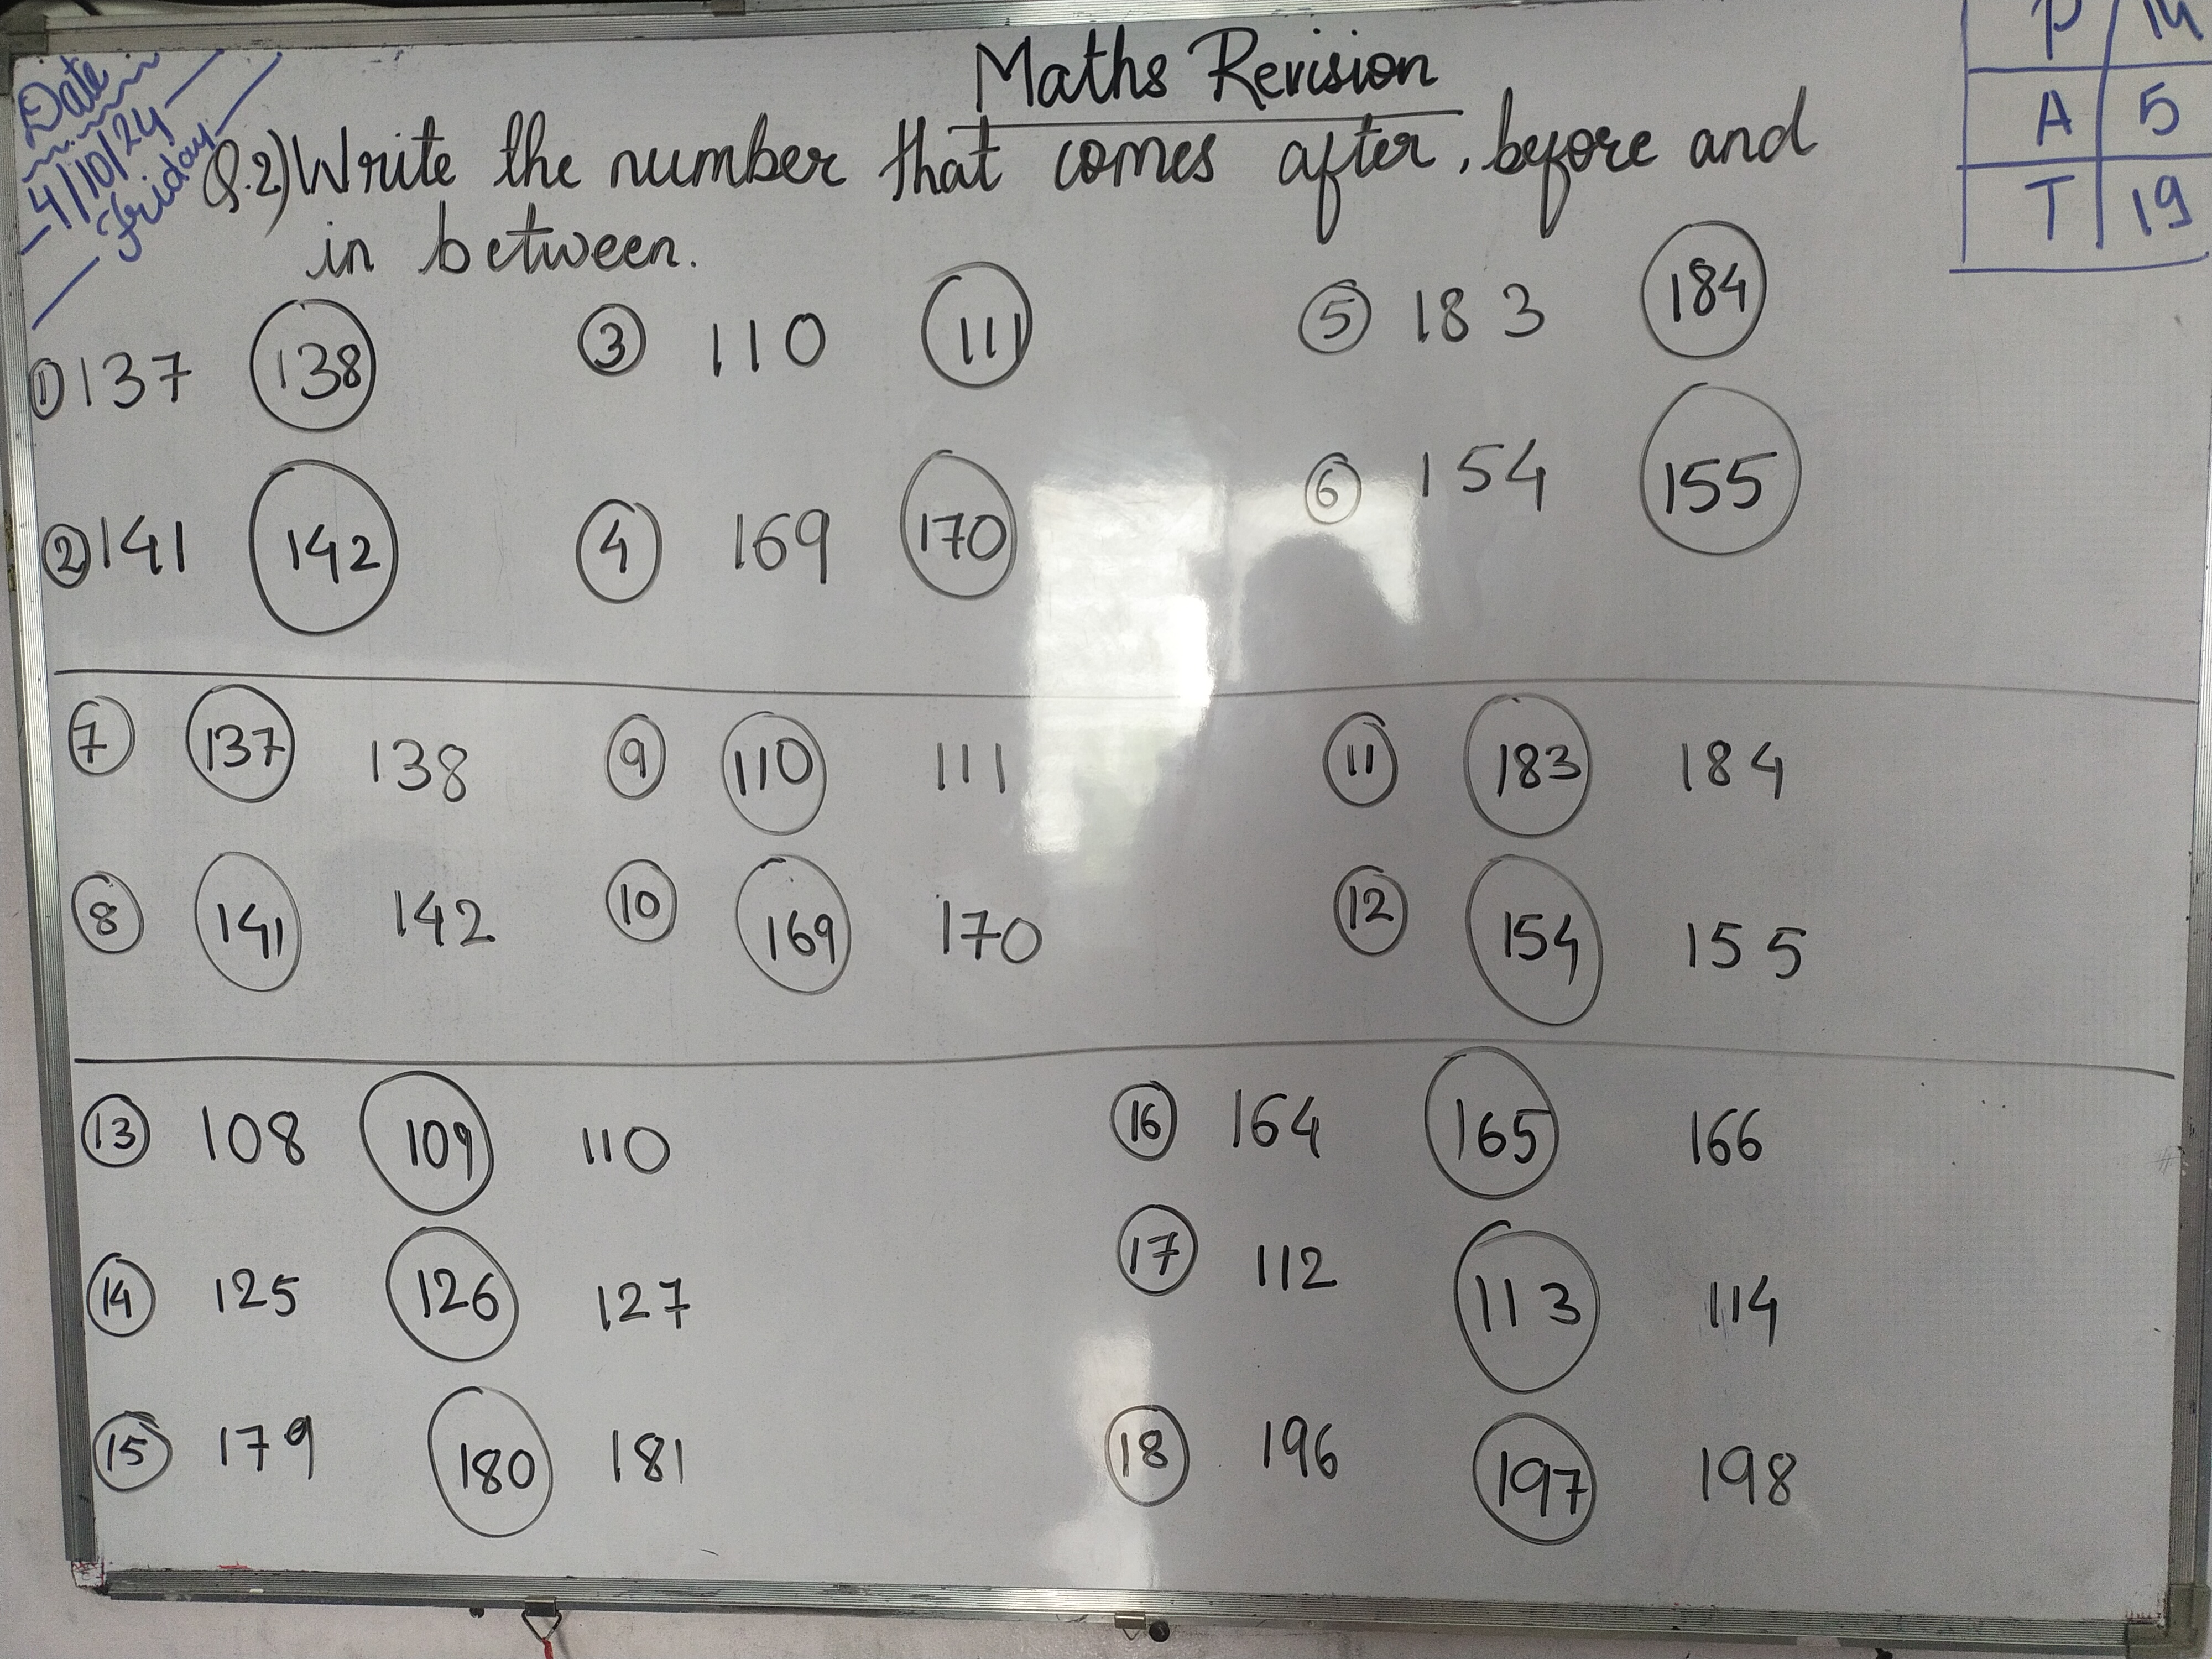 Maths Revision
Date
4/10/24
Friday
P 14
A 5
T 19
Q.2) Write the number that comes after, before and
in between.
① 137 138 ③ 110 111 ⑤ 183 184
② 141 142 ④ 169 170 ⑥ 154 155
⑦ 137 138 ⑨ 110 111 ⑪ 183 184
⑧ 141 142 ⑩ 169 170 ⑫ 154 155
⑬ 108 109 110 ⑯ 164 165 166
⑭ 125 126 127 ⑰ 112 113 114
⑮ 179 180 181 ⑱ 196 197 198